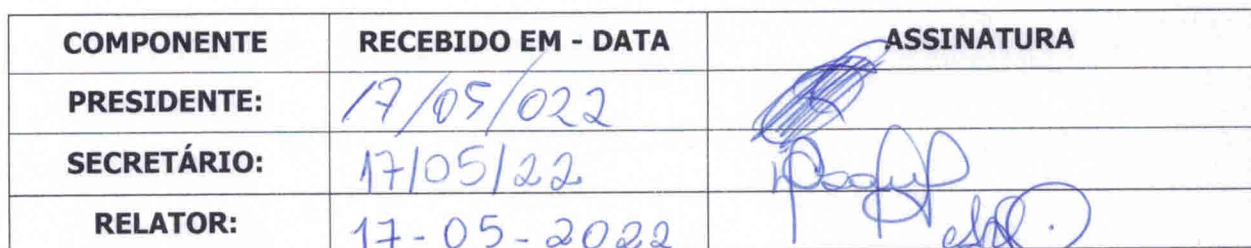 COMPONENTE RECEBIDO EM - DATA ASSINATURA
PRESIDENTE: 17/05/022
SECRETÁRIO: 17/05/22
RELATOR: 17-05-2022